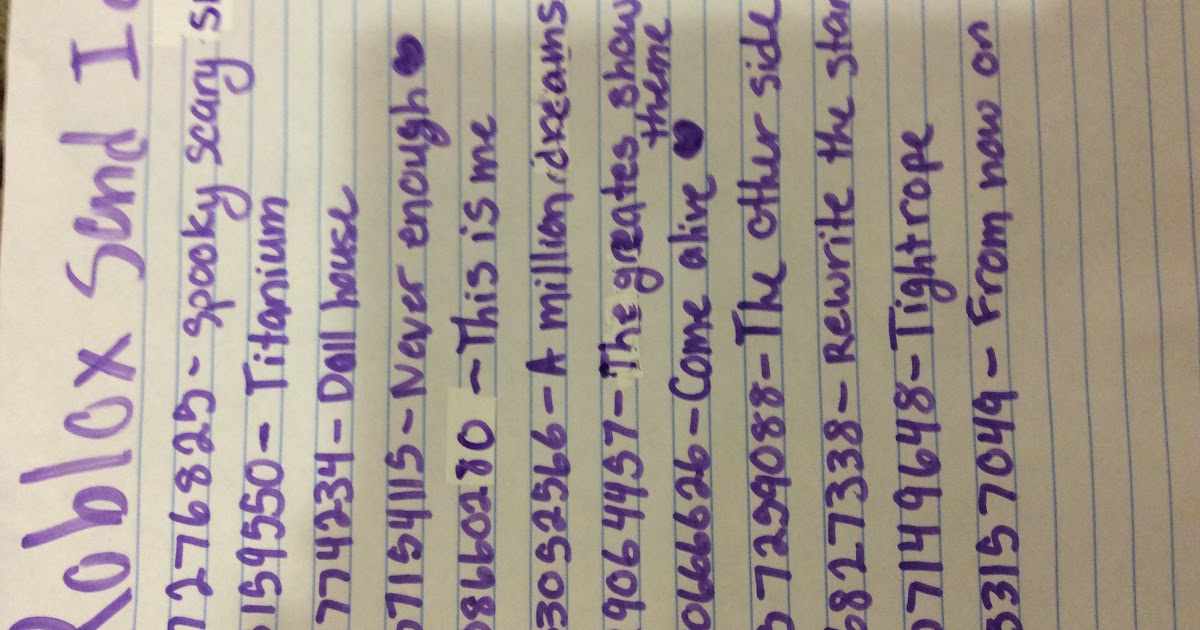 Roblox Send I
7276825- Spooky scary s
159550- Titanium
774234- Doll house
7154115- Never enough
8660280 - This is me
3052566- A million dreams
9064457- The greates show
theme
0666626- Come alive
57259088- The other side
6827338- Rewrite the star
07149648- Tightrope
33157049- From now on